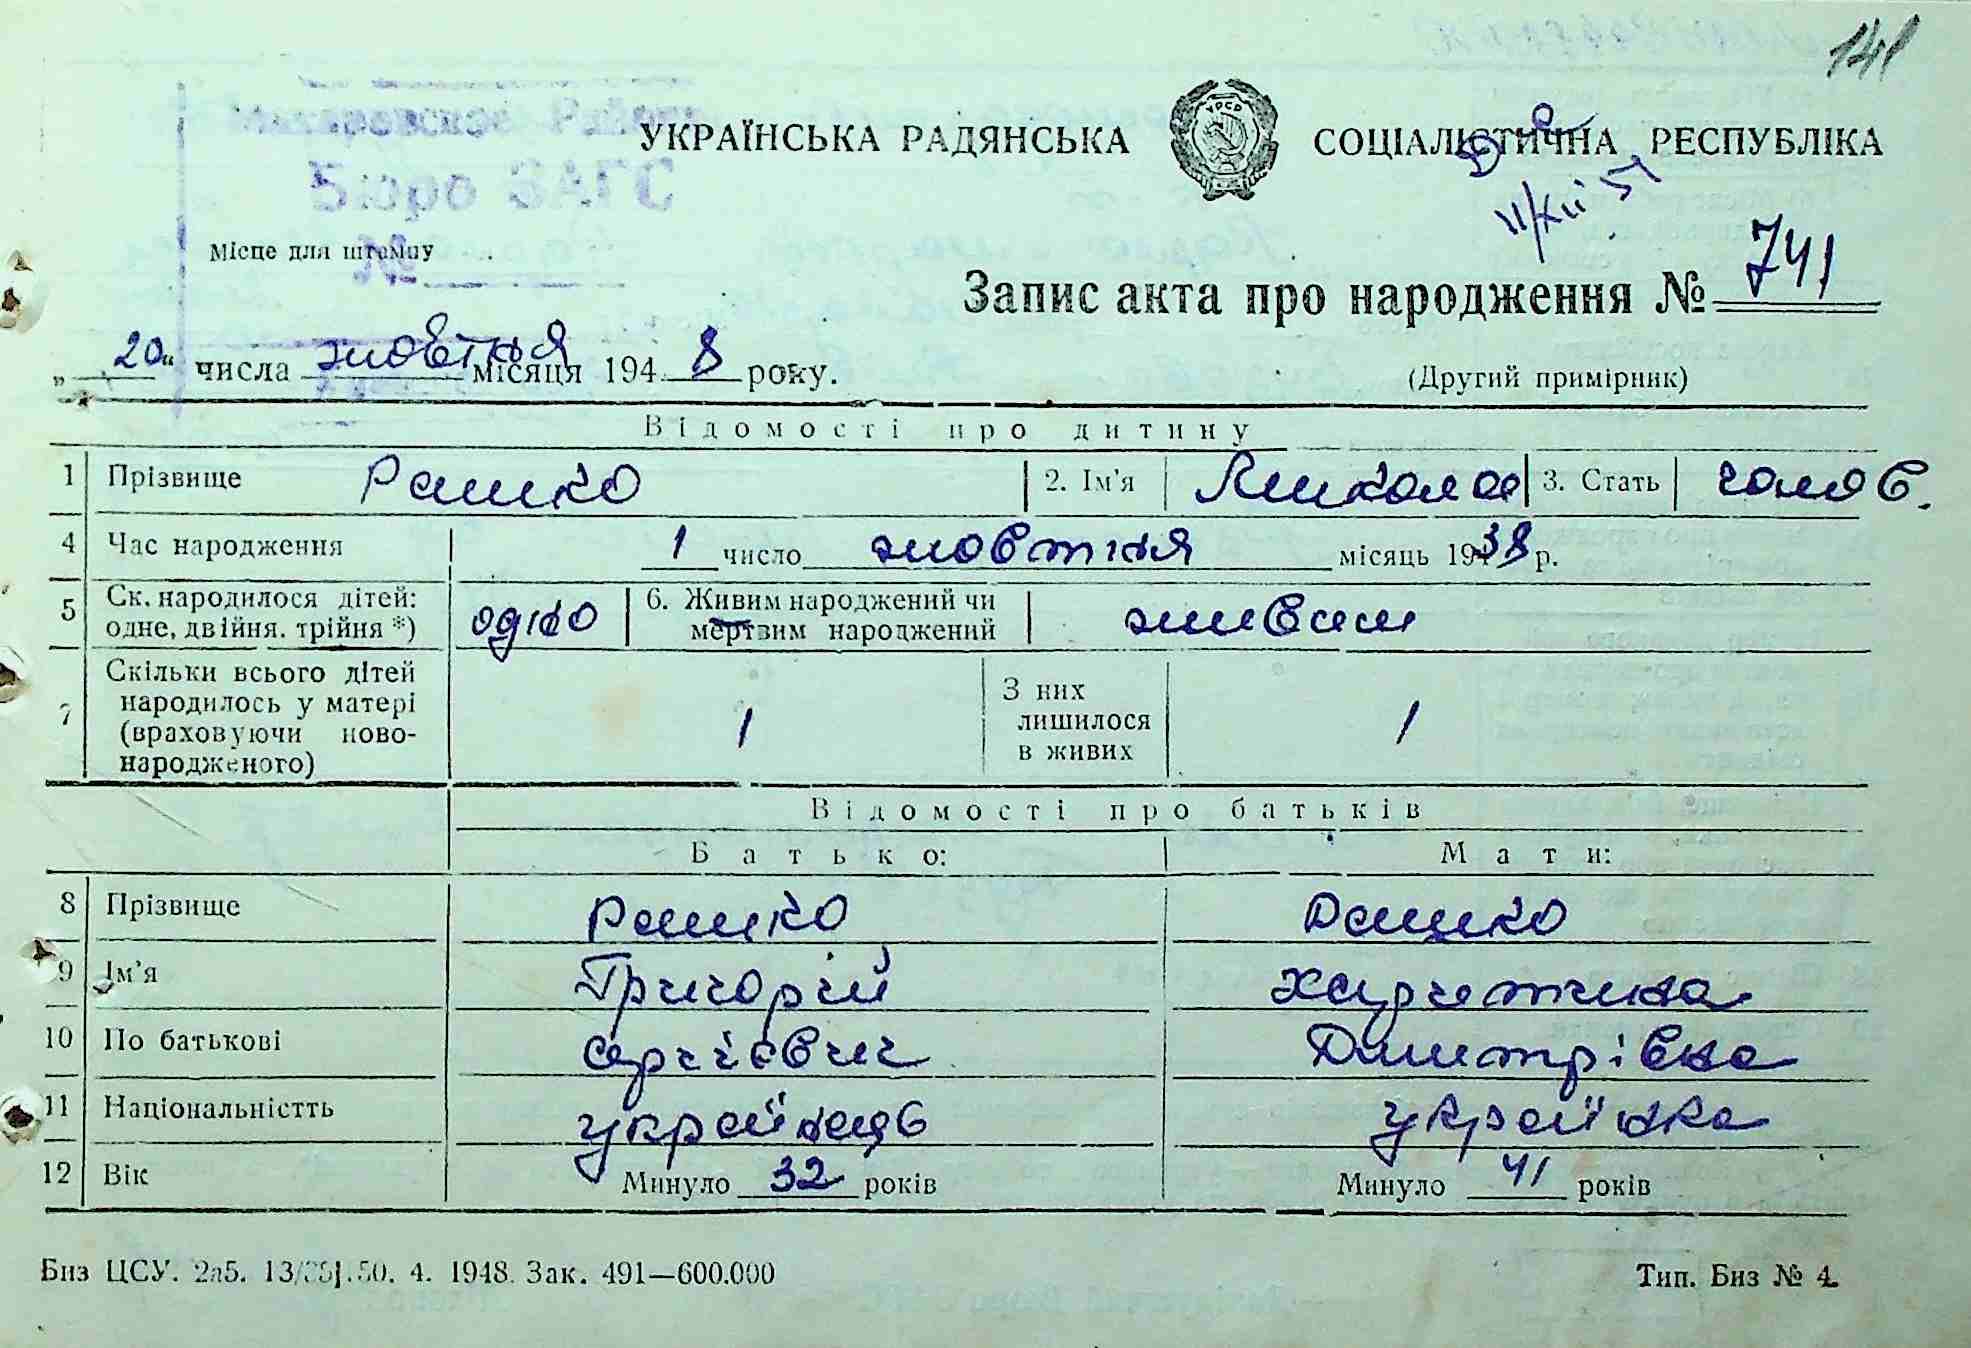 141
Макаровское Район
Бюро ЗАГС
№
УКРАЇНСЬКА РАДЯНСЬКА СОЦІАЛІСТИЧНА РЕСПУБЛІКА
11/XII 51
Місце для штампу
Запис акта про народження № 741
„20“ числа жовтня місяця 1948 року.
(Другий примірник)
Відомості про дитину
1 Прізвище Рашко 2. Ім'я Микола 3. Стать чолов.
4 Час народження 1 число жовтня місяць 1938 р.
5 Ск. народилося дітей: одне, двійня. трійня *) одно 6. Живим народжений чи мертвим народжений живим
7 Скільки всього дітей народилось у матері (враховуючи ново-народженого) 1 З них лишилося в живих 1
Відомості про батьків
Батько: Мати:
8 Прізвище Рашко Дацко
9 Ім'я Григорій
10 По батькові Сергієвич Димитрівна
11 Національністть українець українка
12 Вік Минуло 32 років Минуло 41 років
Биз ЦСУ. 4. 1948. Зак. 491—600.000
Тип. Биз № 4.